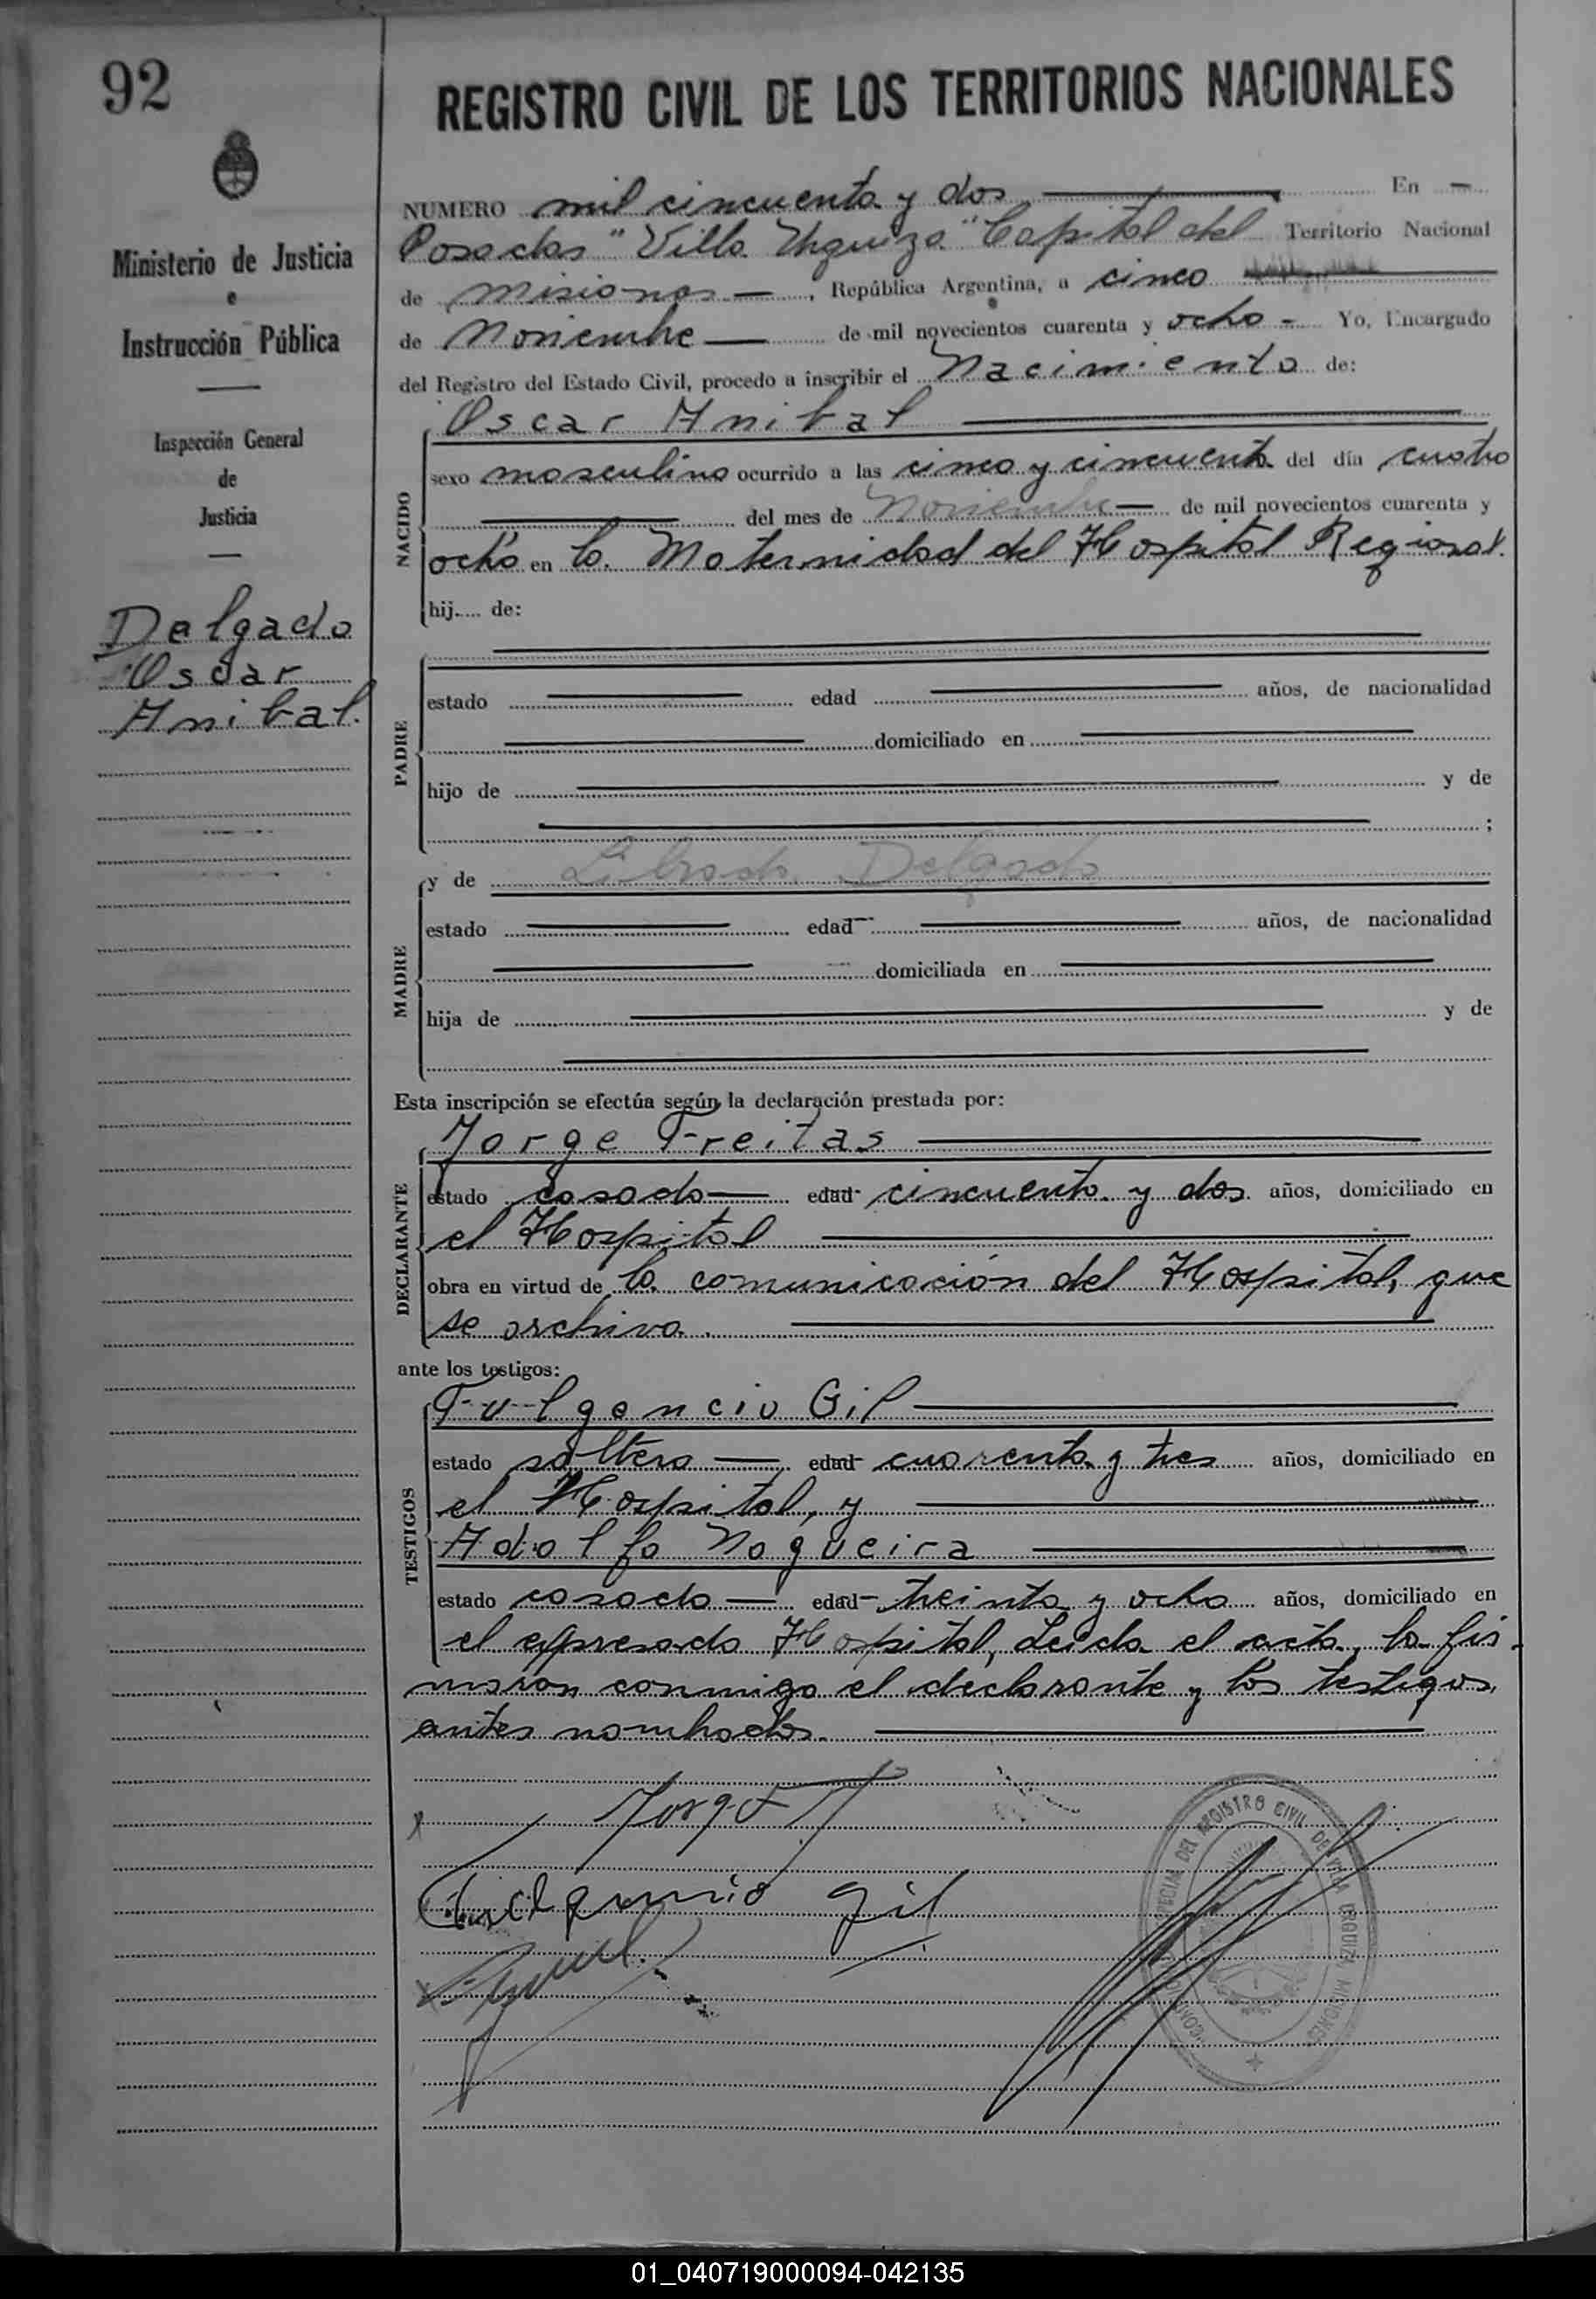 92
REGISTRO CIVIL DE LOS TERRITORIOS NACIONALES
Ministerio de Justicia
e
Instrucción Pública
Inspección General
de
Justicia
Delgado
Oscar
Anibal.
NUMERO mil cincuenta y dos En
Posadas "Villa Urquiza" Capital del Territorio Nacional
de Misiones, República Argentina, a cinco
de Noviembre de mil novecientos cuarenta y ocho Yo, Encargado
del Registro del Estado Civil, procedo a inscribir el Nacimiento de:
Oscar Anibal
NACIDO
sexo masculino ocurrido a las cinco y cincuenta del día cuatro
del mes de Noviembre de mil novecientos cuarenta y
ocho en la Maternidad del Hospital Regional.
hij.... de:
PADRE
estado edad años, de nacionalidad
domiciliado en
hijo de y de
;
MADRE
y de Librada Delgado
estado edad años, de nacionalidad
domiciliada en
hija de y de
Esta inscripción se efectúa según la declaración prestada por:
Jorge Freitas
DECLARANTE
estado casado edad cincuenta y dos años, domiciliado en
el Hospital
obra en virtud de la comunicación del Hospital, que
se archiva.
ante los testigos:
Fulgencio Gil
TESTIGOS
estado soltero edad cuarenta y tres años, domiciliado en
el Hospital, y
Adolfo Nogueira
estado casado edad treinta y ocho años, domiciliado en
el expresado Hospital, Leida el acta, la fir-
maron conmigo el declarante y los testigos,
antes nombrados.
Jorge F
Fulgencio Gil
REGISTRO CIVIL DE VILLA URQUIZA MISIONES
01_040719000094-042135